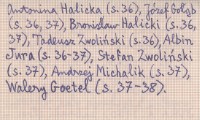 Antonina Halicka (s. 36), Józef Gołąb
(s. 36, 37), Bronisław Halicki (s. 36,
37), Tadeusz Zwoliński (s. 36), Albin
Jura (s. 36-37), Stefan Zwoliński
(s. 37), Andrzej Michalik (s. 37),
Walery Goetel (s. 37-38).